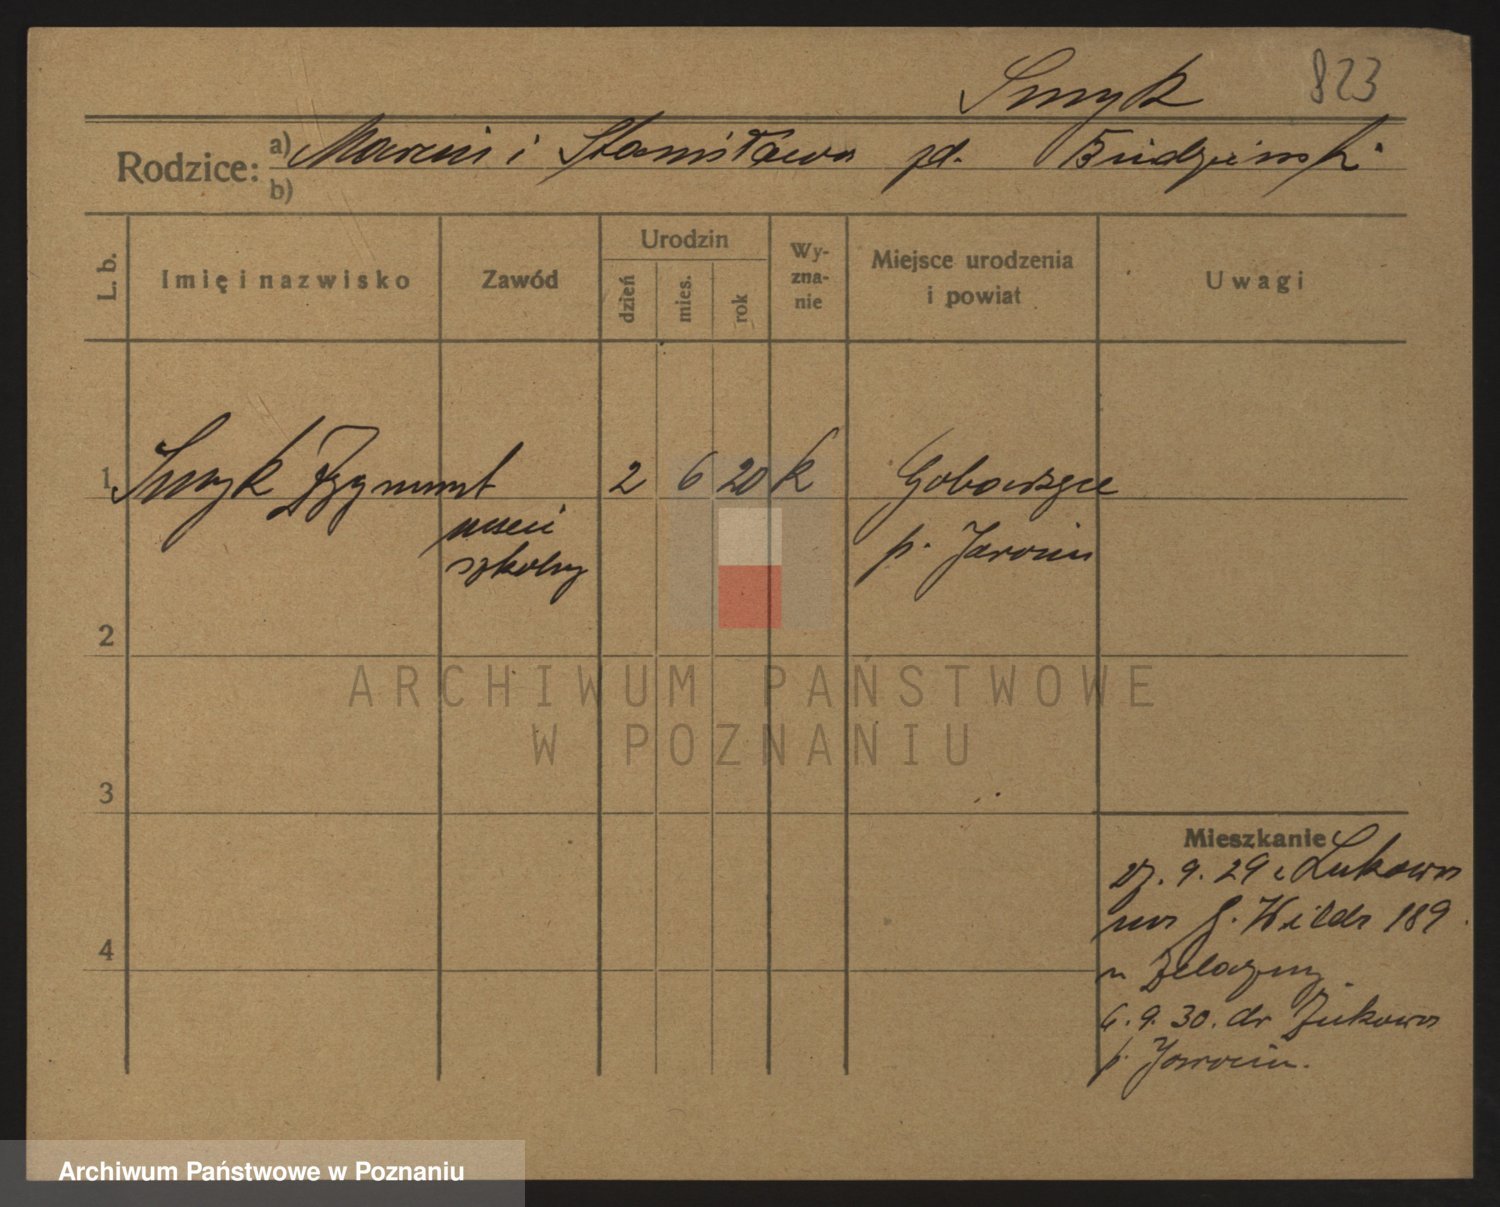 Smyk 823
Rodzice: a) Marcin i Stanisława zd. Budzińsk
b)
L. b. Imię i nazwisko Zawód Urodzin dzień mies. rok Wyznanie Miejsce urodzenia i powiat Uwagi
1 Smyk Zygmunt 2 6 20 k
uczeń p. Jarocin
szkolny
2
3
4
Mieszkanie
27. 9. 29 z Lukowa
na G. Wilda 189
u
6. 9. 30. do Żukowa
p. Jarocin.
ARCHIWUM PAŃSTWOWE
W POZNANIU
Archiwum Państwowe w Poznaniu